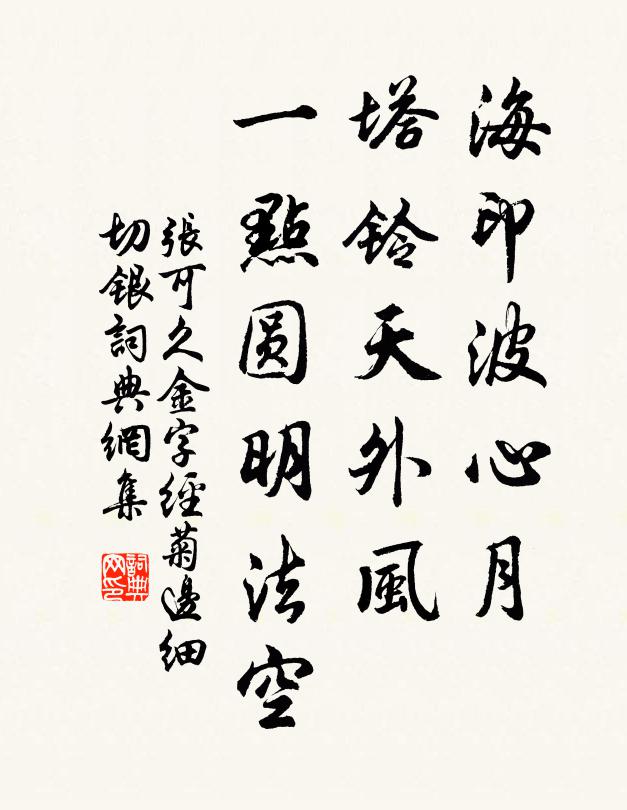 海印波心月
塔鈴天外風
一點圓明法空
張可久金字經菊邊細
切銀詞典網集
詞典网印